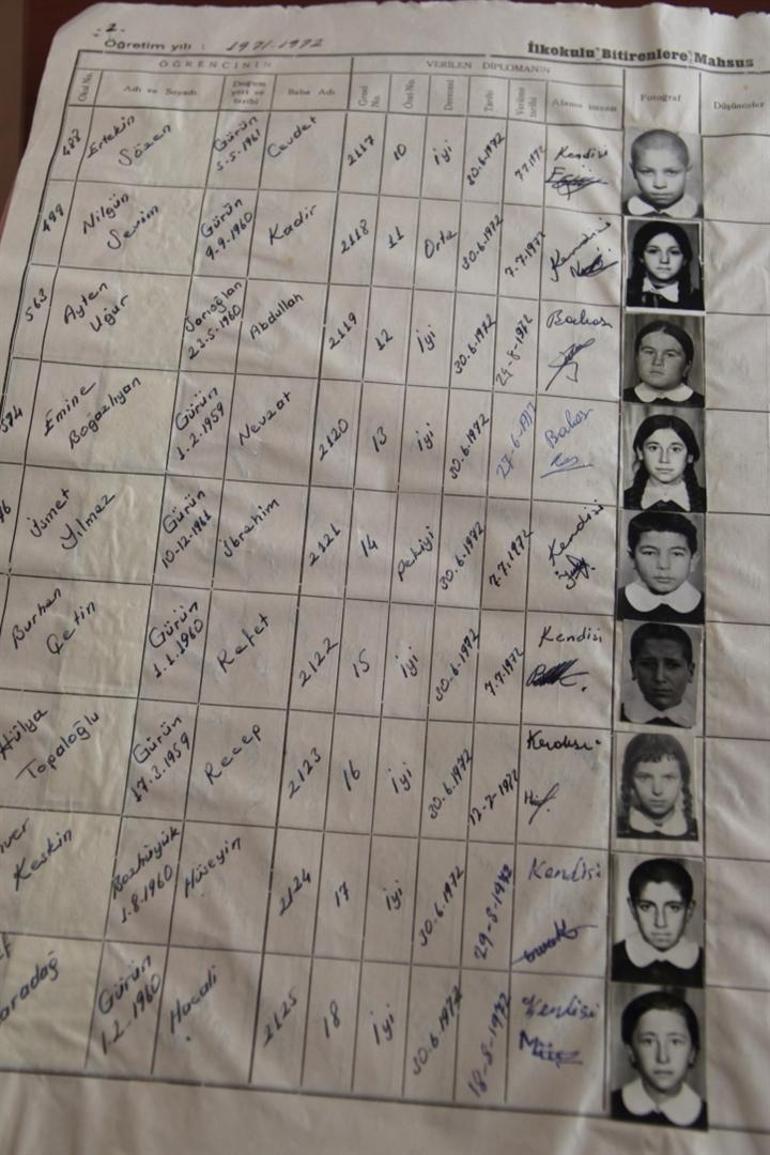 .2.
Öğretim yılı : 1971-1972 İlkokulu Bitirenlere Mahsus
ÖĞRENCİNİN VERİLEN DİPLOMANIN
Okul No. Adı ve Soyadı Doğum yeri ve tarihi Baba Adı Genel No. Özel No. Derecesi Tarihi Verilme tarihi Fotoğraf Düşünceler
488 Ertekin Sözen Gürün 5-5-1961 Cevdet 2117 10 iyi 30.6.1972 7.7.1972 Kendisi
499 Nilgün Sevim Gürün 9-9-1960 Kadir 2118 11 Orta 30.6.1972 7.7.1972 Kendisi
563 Ayten Uğur 23.5.1960 Abdullah 2119 12 iyi 30.6.1972 24-8-1972 Babası
574 Emine Boğazlıyan Gürün 1.2.1959 Nevzat 2120 13 iyi 30.6.1972 Babası
İsmet Yılmaz Gürün 10-12-1961 İbrahim 2121 14 pekiyi 30.6.1972 7.7.1972 Kendisi
Burhan Çetin Gürün 1.1.1960 Refet 2122 15 iyi 30.6.1972 7.7.1972 Kendisi
Hülya Topaloğlu Gürün 17.3.1959 Recep 2123 16 iyi 30.6.1972 12-7-1972 Kendisi
Keskin Bozhüyük 1.8.1960 Hüseyin 2124 17 iyi 30.6.1972 29-8-1972 Kendisi
aradağ Gürün 1.2.1960 Hacali 2125 18 iyi 30.6.1972 18-8-1972 Kendisi